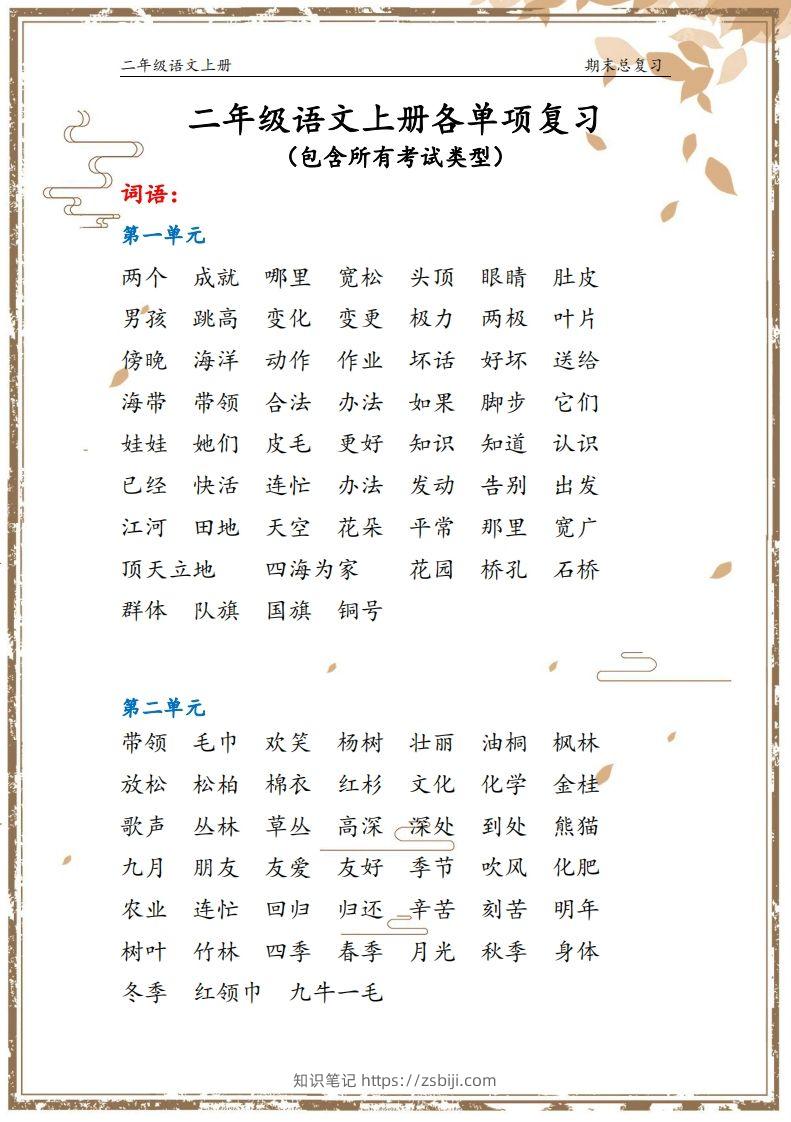 二年级语文上册 期末总复习
二年级语文上册各单项复习
（包含所有考试类型）
词语：
第一单元
两个 成就 哪里 宽松 头顶 眼睛 肚皮
男孩 跳高 变化 变更 极力 两极 叶片
傍晚 海洋 动作 作业 坏话 好坏 送给
海带 带领 合法 办法 如果 脚步 它们
娃娃 她们 皮毛 更好 知识 知道 认识
已经 快活 连忙 办法 发动 告别 出发
江河 田地 天空 花朵 平常 那里 宽广
顶天立地 四海为家 花园 桥孔 石桥
群体 队旗 国旗 铜号
第二单元
带领 毛巾 欢笑 杨树 壮丽 油桐 枫林
放松 松柏 棉衣 红杉 文化 化学 金桂
歌声 丛林 草丛 高深 深处 到处 熊猫
九月 朋友 友爱 友好 季节 吹风 化肥
农业 连忙 回归 归还 辛苦 刻苦 明年
树叶 竹林 四季 春季 月光 秋季 身体
冬季 红领巾 九牛一毛
知识笔记 https://zsbiji.com